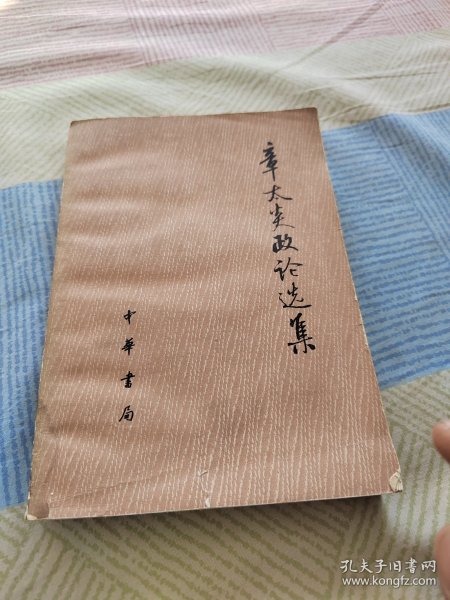 章太炎政论选集
中华书局
孔夫子旧书网
www.kongfz.com